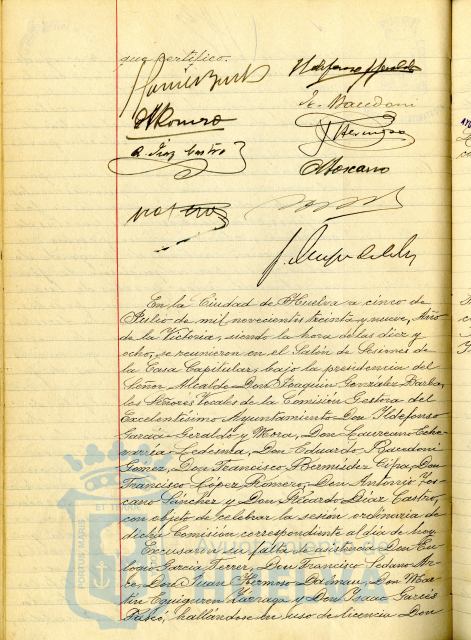 que certifico.
A Romero
E. Bacedoni
R. Diaz Castro
J Hermoso
A Toscano
En la Ciudad de Huelva a cinco de
Julio de mil novecientos treinta y nueve, Año
de la Victoria, siendo la hora de las diez y
ocho, se reunieron en el Salón de Sesiones de
la Casa Capitular, bajo la presidencia del
Señor Alcalde Don Joaquin Gonzalez Barba,
los Señores Vocales de la Comisión Gestora del
Excelentísimo Ayuntamiento Don Ildefonso
Garcia Geraldo y Mora, Don Laureano Eche
varria Ledesma, Don Eduardo Bacedoni
Gomez, Don Francisco Bermudez
Don
Francisco López Romero, Don Antonio Tos
cano Sánchez y Don Ricardo Diaz Castro,
con objeto de celebrar la sesión ordinaria de
dicha Comisión correspondiente al dia de hoy.
Excusaron su falta de asistencia Don Eu
logio Garcia Ferrer, Don Francisco Sedano Ar
ce, Don Juan Hermoso Dalmau, Don Mar
tin Equiguren Lizaga y Don Isaac Garcia
hallándose en uso de licencia Don
PORTUS MARIS
ET TERRAE